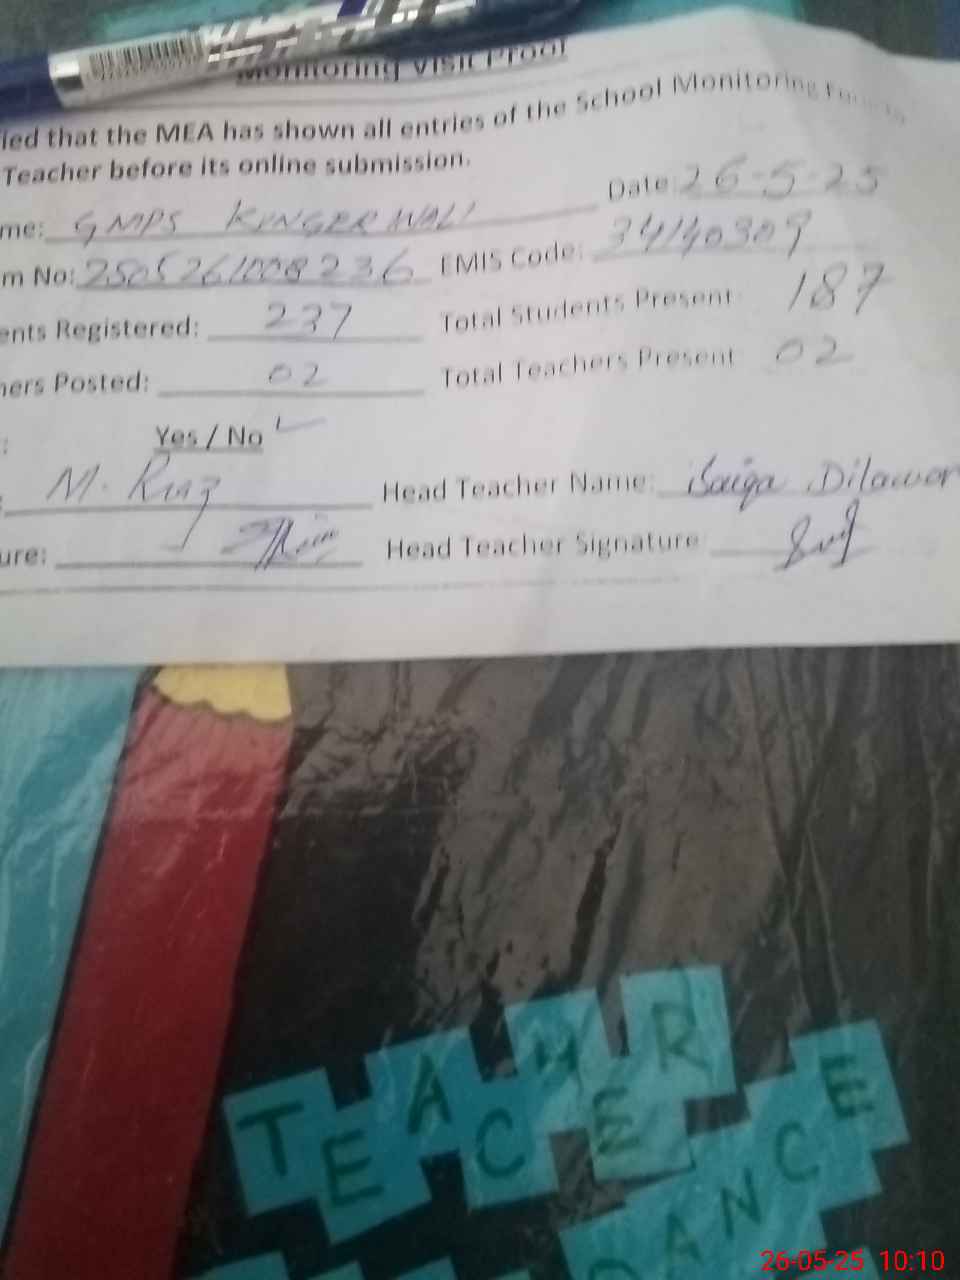 Monitoring Visit Proof
ied that the MEA has shown all entries of the School Monitoring
Teacher before its online submission.
Date: 26-5-25
me: GMPS KINGER WALI
m No: 2505261008236 EMIS Code: 34140309
ents Registered: 237 Total Students Present 187
hers Posted: 02 Total Teachers Present 02
: Yes / No
M. Riaz Head Teacher Name: Saiqa Dilawar
ure: Head Teacher Signature
TEACHER
ANCE
26-05-25 10:10